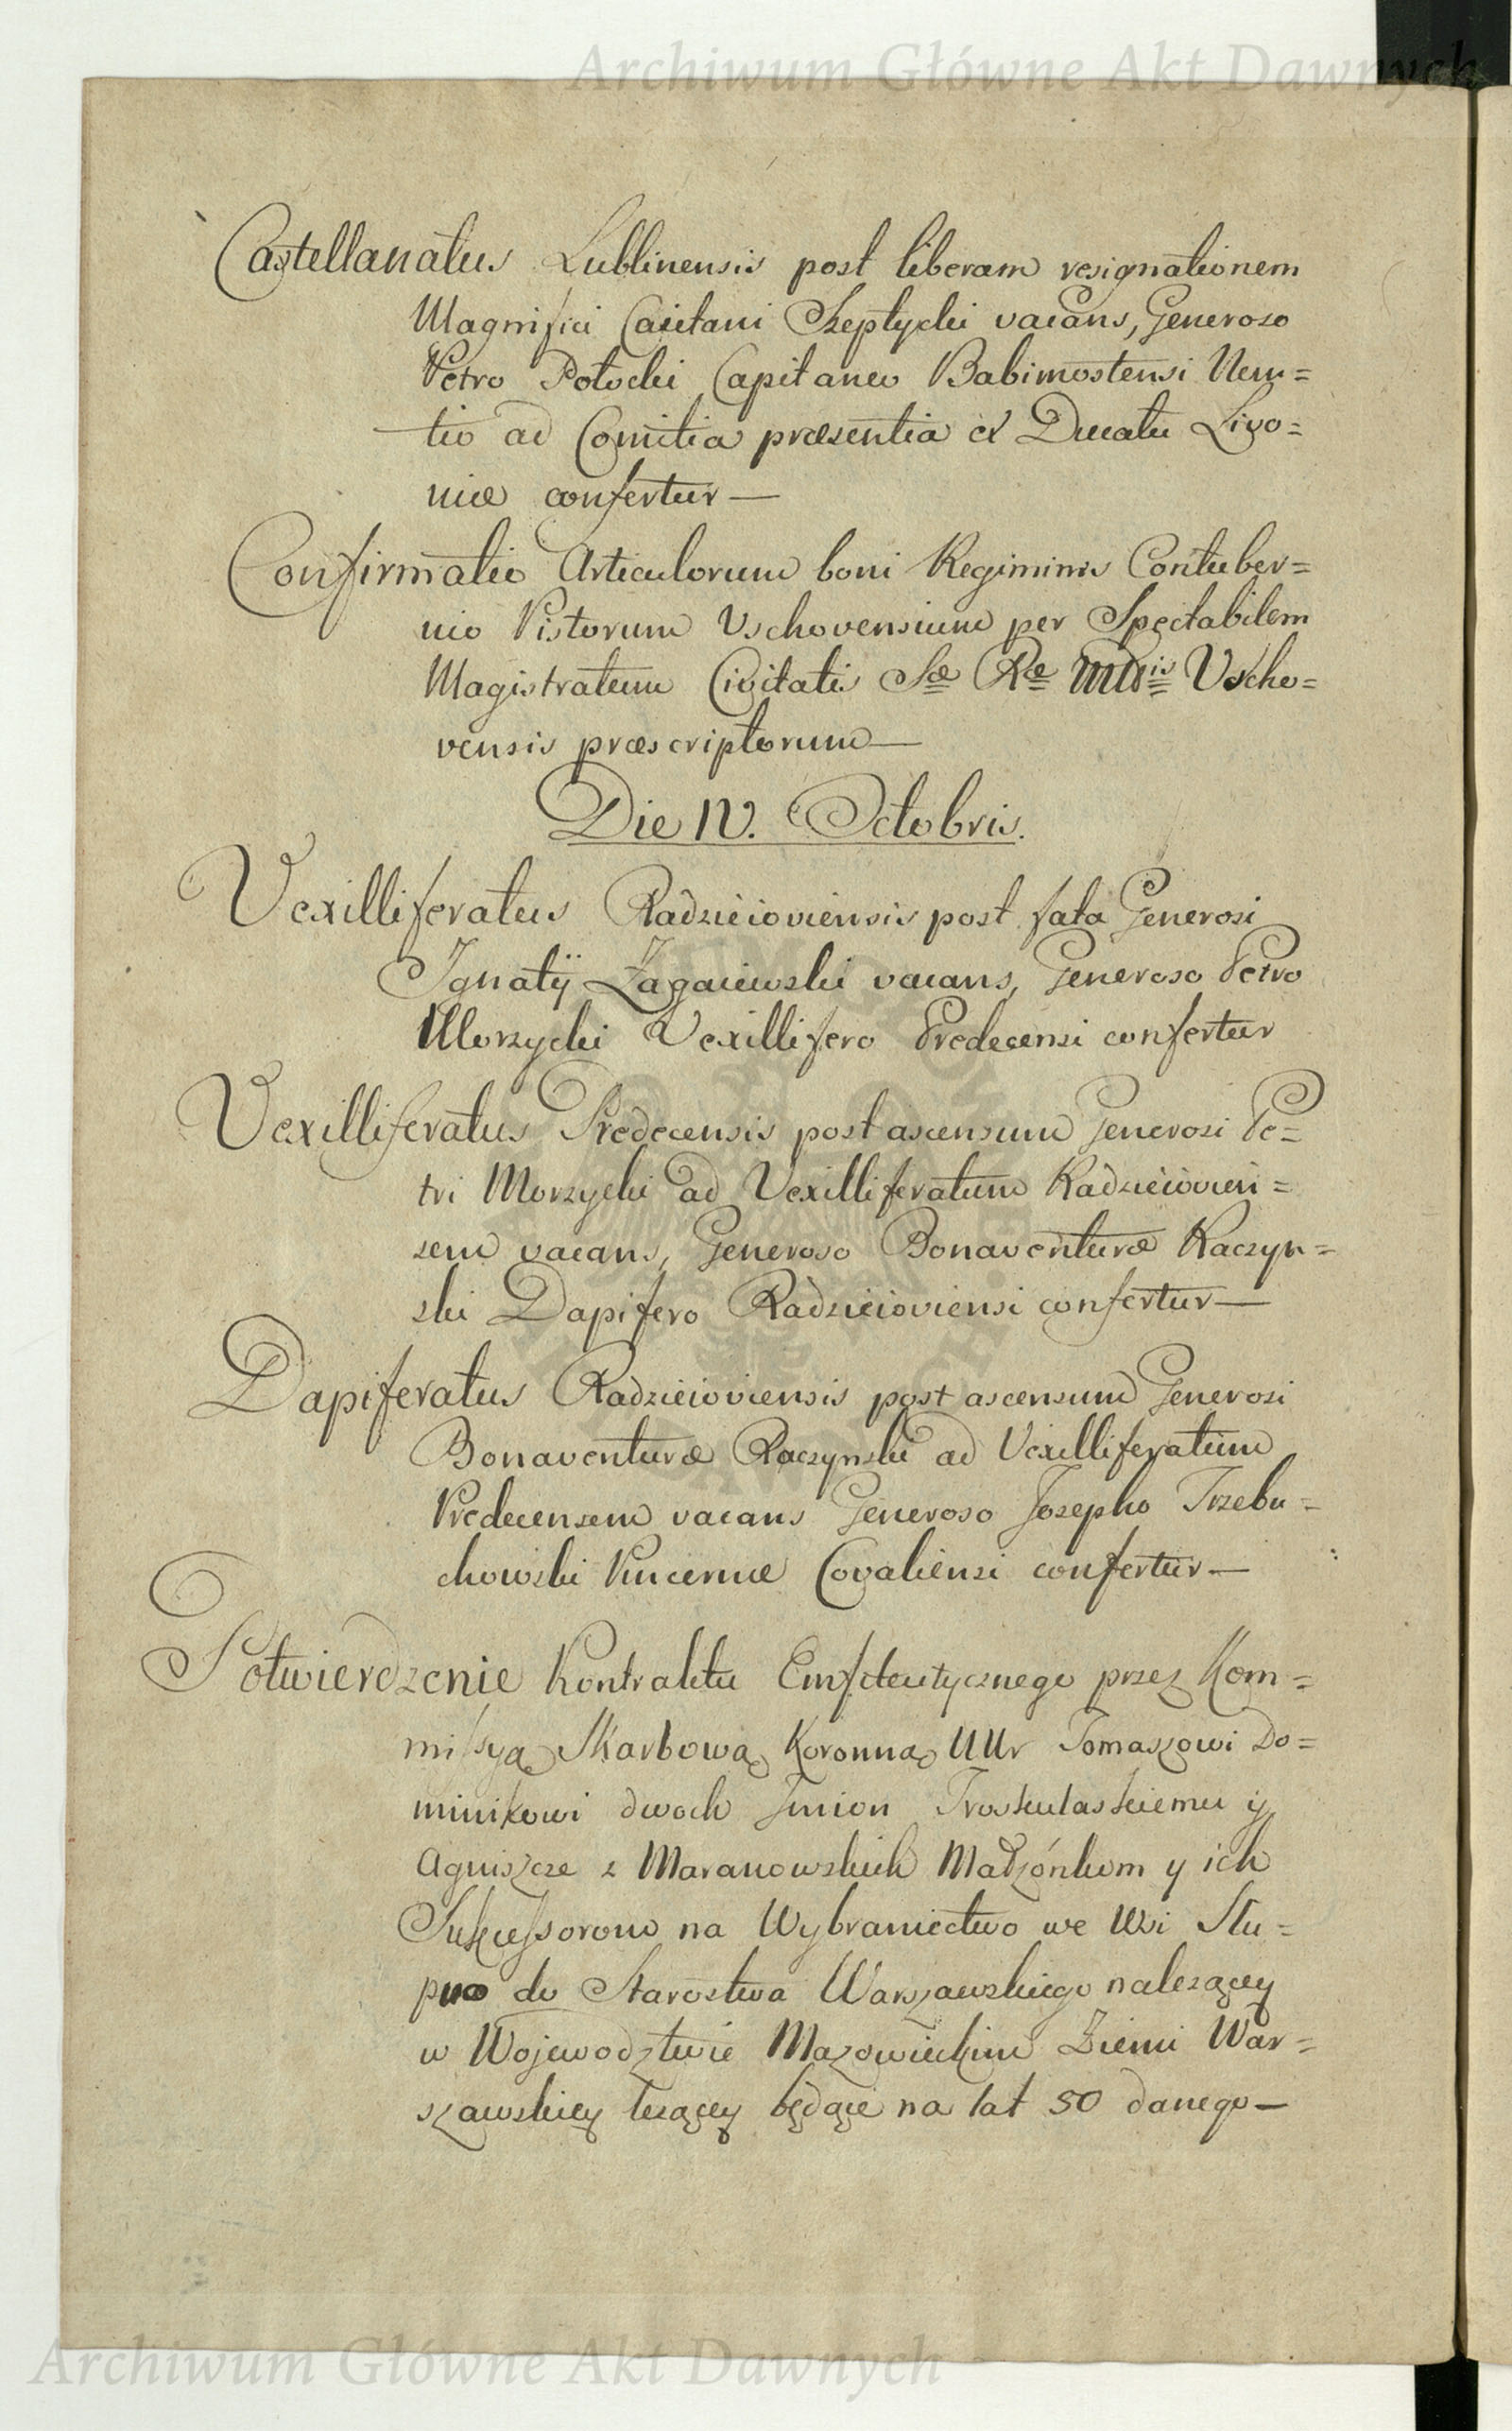 Archiwum Główne Akt Dawnych
Castellanatus Lublinensis post liberam resignationem
Magnifici Caietani Szeptycki vacans, Generoso
Petro Potocki Capitaneo Babimostensi Nun=
tio ad Comitia præsentia ex Ducatu Livo=
niæ confertur—
Confirmatio Articulorum boni Regiminis Contuber=
nio Pistorum Vschovensium per Spectabilem
Magistratum Civitatis Sæ Ræ Mttis Vscho=
vensis præscriptorum—
Die IV. Octobris.
Vexilliferatus Radzieioviensis post fata Generosi
Ignatij Zagaiewski vacans, Generoso Petro
Morzycki Vexillifero Predecensi confertur
Vexilliferatus Predecensis post ascensum Generosi Pe=
tri Morzycki ad Vexilliferatum Radzieiovien=
sem vacans, Generoso Bonaventuræ Raczyn=
ski Dapifero Radzieioviensi confertur—
Dapiferatus Radzieioviensis post ascensum Generosi
Bonaventuræ Raczynski ad Vexilliferatum
Predecensem vacans Generoso Josepho Trzebu=
chowski Pincernæ Covaliensi confertur—
Potwierdzenie Kontraktu Emfiteutycznego przez Kom=
missyą Skarbową Koronną UUr Tomaszowi Do=
minikowi dwoch Imion Troskulaskiemu y
Agniszce z Maranowskich Małżónkom y ich
Sukcessorom na Wybraniectwo we Wsi Słu=
pno do Starostwa Warszawskiego nalezącey
w Wojewodztwie Mazowieckim Ziemi War=
szawskiey lezącey będące na lat 50 danego—
Archiwum Główne Akt Dawnych